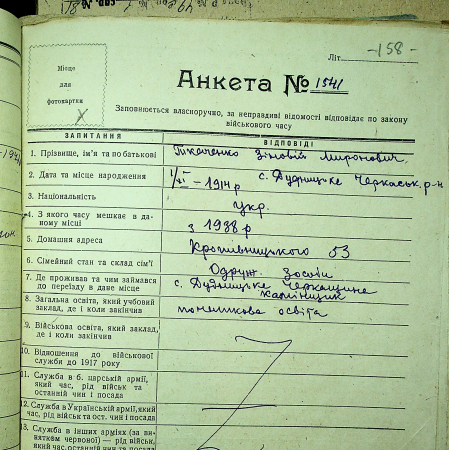 Літ. -158-
Місце
для
фотокартки
Анкета № 1541
Заповнюється власноручно, за неправдиві відомості відповідає по закону
військового часу
ЗАПИТАННЯ ВІДПОВІДІ
1. Прізвище, ім'я та по батькові Ткаченко Зіновій Миронович.
2. Дата та місце народження 1/XI - 1914 р с. Черкаськ. р-н
3. Національність укр.
4. З якого часу мешкає в да-
ному місці з 1938 р
5. Домашня адреса Кропівницького 53
6. Сімейний стан та склад сім'ї Одруж.
7. Де проживав та чим займався
до переїзду в дане місце с. Черкащине
8. Загальна освіта, який учбовий
заклад, де і коли закінчив початкова освіта
9. Військова освіта, який заклад,
де і коли закінчив
10. Відношення до військової
служби до 1917 року
11. Служба в б. царській армії,
який час, рід військ та
останній чин і посада
12. Служба в Українській армії, який
час, рід військ та ост. чин і посада
13. Служба в інших арміях (за ви-
нятком червоної) — рід військ,
який час, останній чин та посада